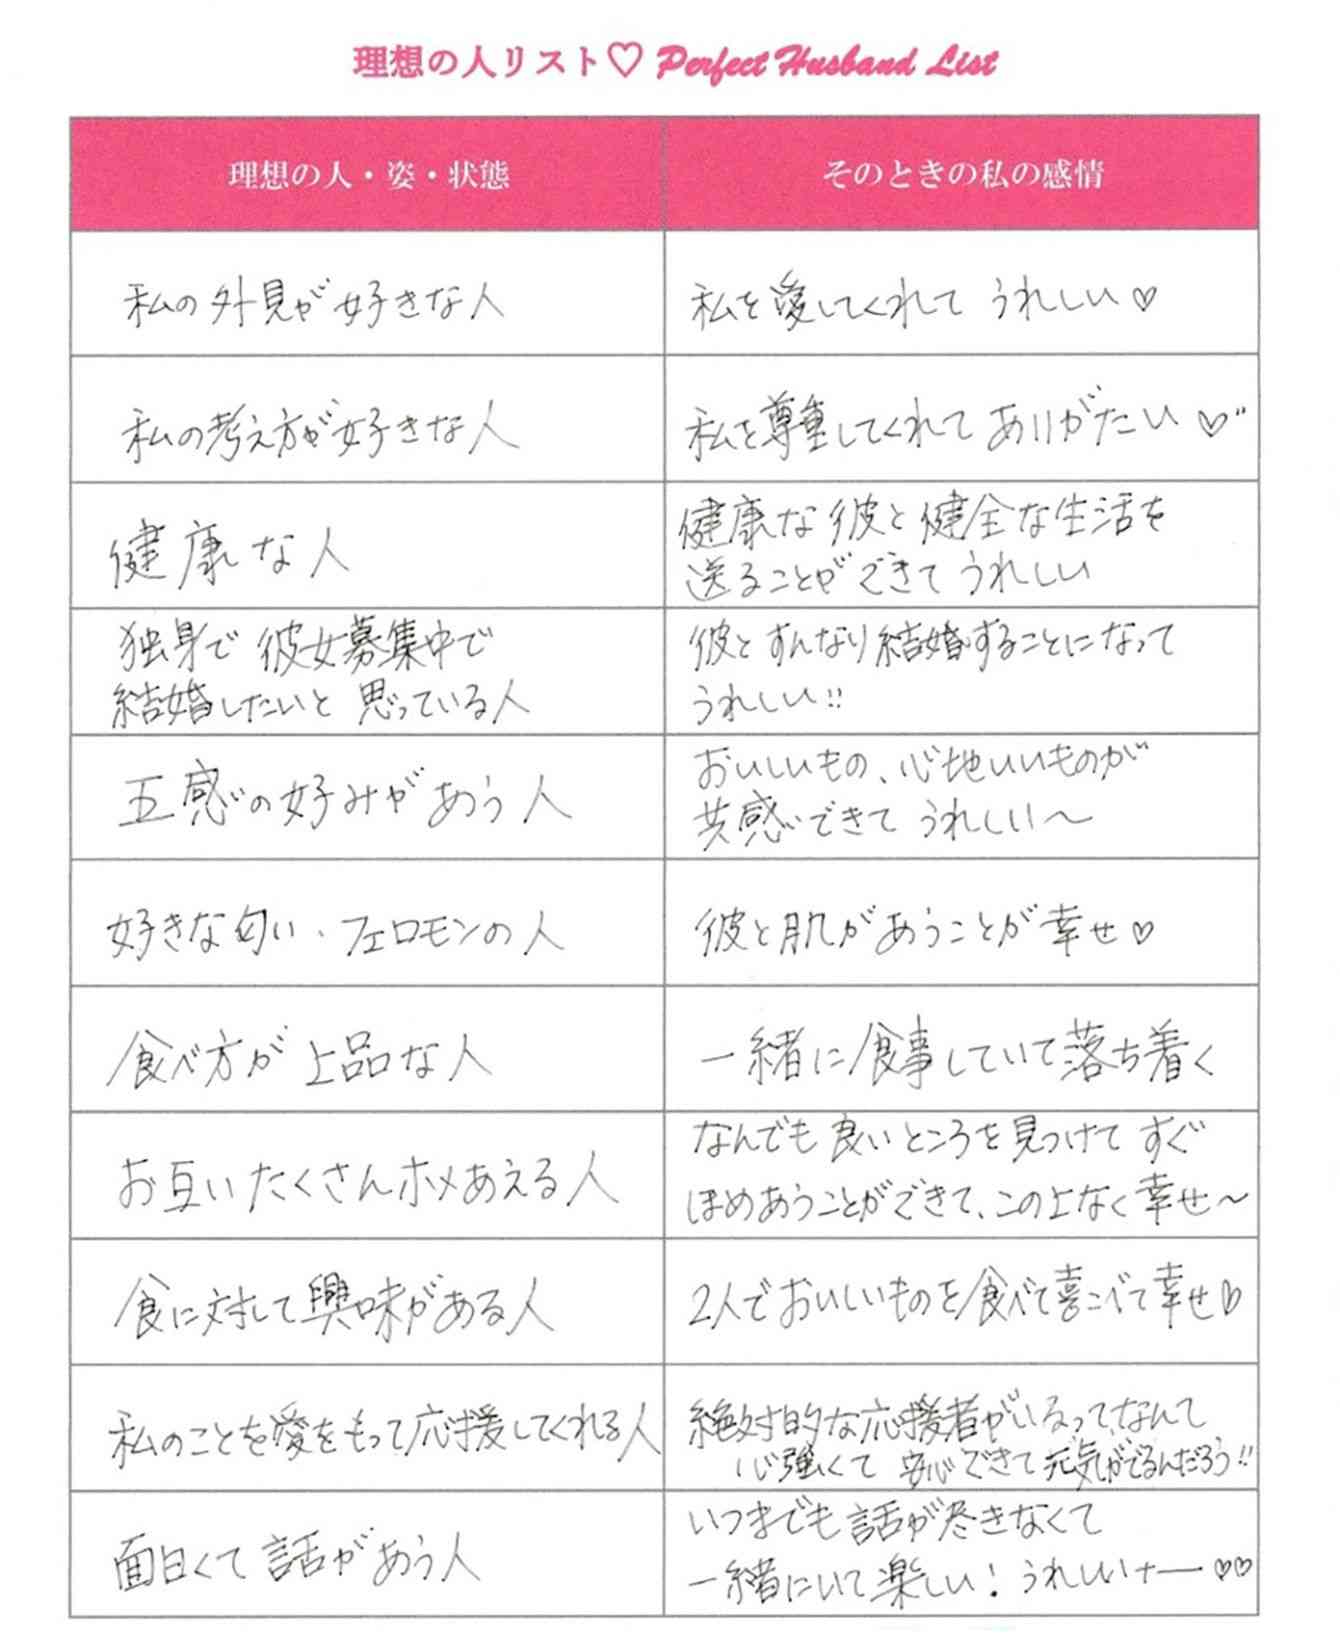 理想の人リスト♡ Perfect Husband List
理想の人・姿・状態
そのときの私の感情
私の外見が好きな人
私を愛してくれて うれしい♡
私の考え方が好きな人
私を尊重してくれて ありがたい♡"
健康な人
健康な彼と健全な生活を
送ることができて うれしい
独身で 彼女募集中で
結婚したいと 思っている人
彼と すんなり結婚することになって
うれしい!!
五感の好みがあう人
おいしいもの、心地いいものが
共感できて うれしい〜
好きな匂い・フェロモンの人
彼と肌があうことが幸せ♡
食べ方が上品な人
一緒に食事していて落ち着く
お互いたくさんホメあえる人
なんでも良いところを見つけて すぐ
ほめあうことができて、この上なく幸せ〜
食に対して興味がある人
2人でおいしいものを食べて喜こべて幸せ♡
私のことを愛をもって応援してくれる人
絶対的な応援者がいるってなんて
心強くて 安心できて元気がでるんだろう!!
面白くて話があう人
いつまでも話が尽きなくて
一緒にいて楽しい! うれしいナー♡♡